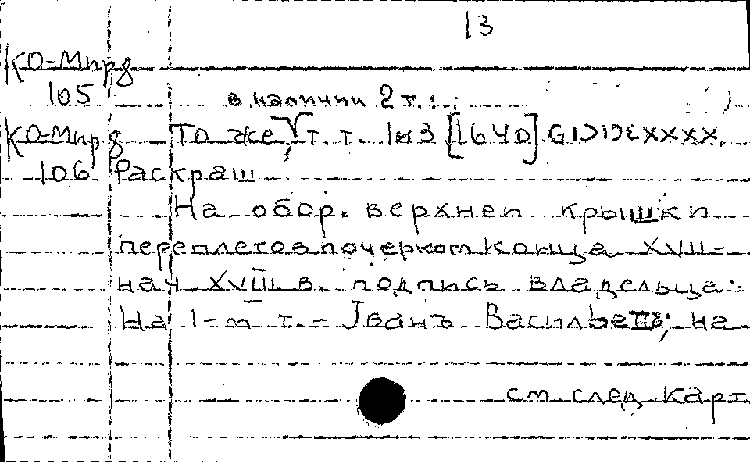 13
КО-Мпрд
105
в наличии 2 т.:
КО-Мпрд То же, т. т. 1 и 3 [1640] CIƆIƆCXXXX.
106 Раскраш
На обор. верхней крышки
переплетов почерком конца XVII-
нач XVIII в. подпись владельца:
На 1-м т. - Iванъ Васильевъ; на
см след карт